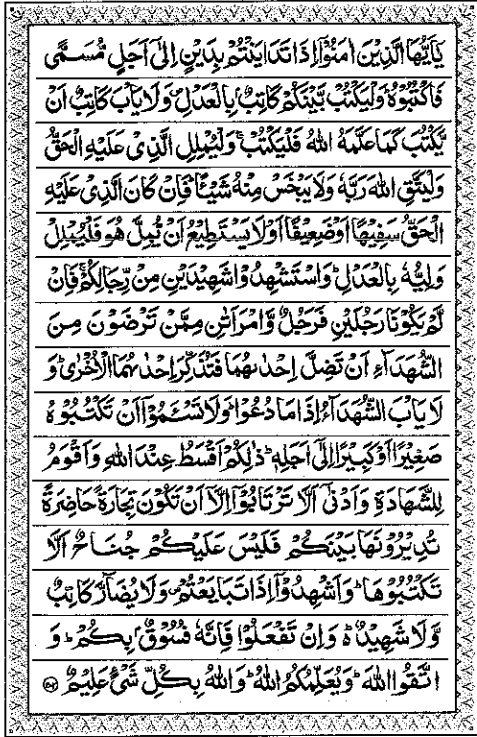 يٰٓاَيُّهَا الَّذِيْنَ اٰمَنُوْٓا اِذَا تَدَايَنْتُمْ بِدَيْنٍ اِلٰٓى اَجَلٍ مُّسَمًّى
فَاكْتُبُوْهُ ؕ وَلْيَكْتُبْ بَّيْنَكُمْ كَاتِبٌۢ بِالْعَدْلِ ۪ وَلَا يَاْبَ كَاتِبٌ اَنْ
يَّكْتُبَ كَمَا عَلَّمَهُ اللّٰهُ فَلْيَكْتُبْ ۚ وَلْيُمْلِلِ الَّذِيْ عَلَيْهِ الْحَقُّ
وَلْيَتَّقِ اللّٰهَ رَبَّهٗ وَلَا يَبْخَسْ مِنْهُ شَيْـًٔا ؕ فَاِنْ كَانَ الَّذِيْ عَلَيْهِ
الْحَقُّ سَفِيْهًا اَوْ ضَعِيْفًا اَوْ لَا يَسْتَطِيْعُ اَنْ يُّمِلَّ هُوَ فَلْيُمْلِلْ
وَلِيُّهٗ بِالْعَدْلِ ؕ وَاسْتَشْهِدُوْا شَهِيْدَيْنِ مِنْ رِّجَالِكُمْ ۚ فَاِنْ
لَّمْ يَكُوْنَا رَجُلَيْنِ فَرَجُلٌ وَّامْرَاَتٰنِ مِمَّنْ تَرْضَوْنَ مِنَ
الشُّهَدَآءِ اَنْ تَضِلَّ اِحْدٰىهُمَا فَتُذَكِّرَ اِحْدٰىهُمَا الْاُخْرٰى ؕ وَ
لَا يَاْبَ الشُّهَدَآءُ اِذَا مَا دُعُوْا ؕ وَلَا تَسْـَٔمُوْٓا اَنْ تَكْتُبُوْهُ
صَغِيْرًا اَوْ كَبِيْرًا اِلٰٓى اَجَلِهٖ ؕ ذٰلِكُمْ اَقْسَطُ عِنْدَ اللّٰهِ وَاَقْوَمُ
لِلشَّهَادَةِ وَاَدْنٰٓى اَلَّا تَرْتَابُوْٓا اِلَّآ اَنْ تَكُوْنَ تِجَارَةً حَاضِرَةً
تُدِيْرُوْنَهَا بَيْنَكُمْ فَلَيْسَ عَلَيْكُمْ جُنَاحٌ اَلَّا
تَكْتُبُوْهَا ؕ وَاَشْهِدُوْٓا اِذَا تَبَايَعْتُمْ ۪ وَلَا يُضَآرَّ كَاتِبٌ
وَّلَا شَهِيْدٌ ؕ۬ وَاِنْ تَفْعَلُوْا فَاِنَّهٗ فُسُوْقٌۢ بِكُمْ ؕ وَ
اتَّقُوا اللّٰهَ ؕ وَيُعَلِّمُكُمُ اللّٰهُ ؕ وَاللّٰهُ بِكُلِّ شَيْءٍ عَلِيْمٌ ﴿۲۸۲﴾